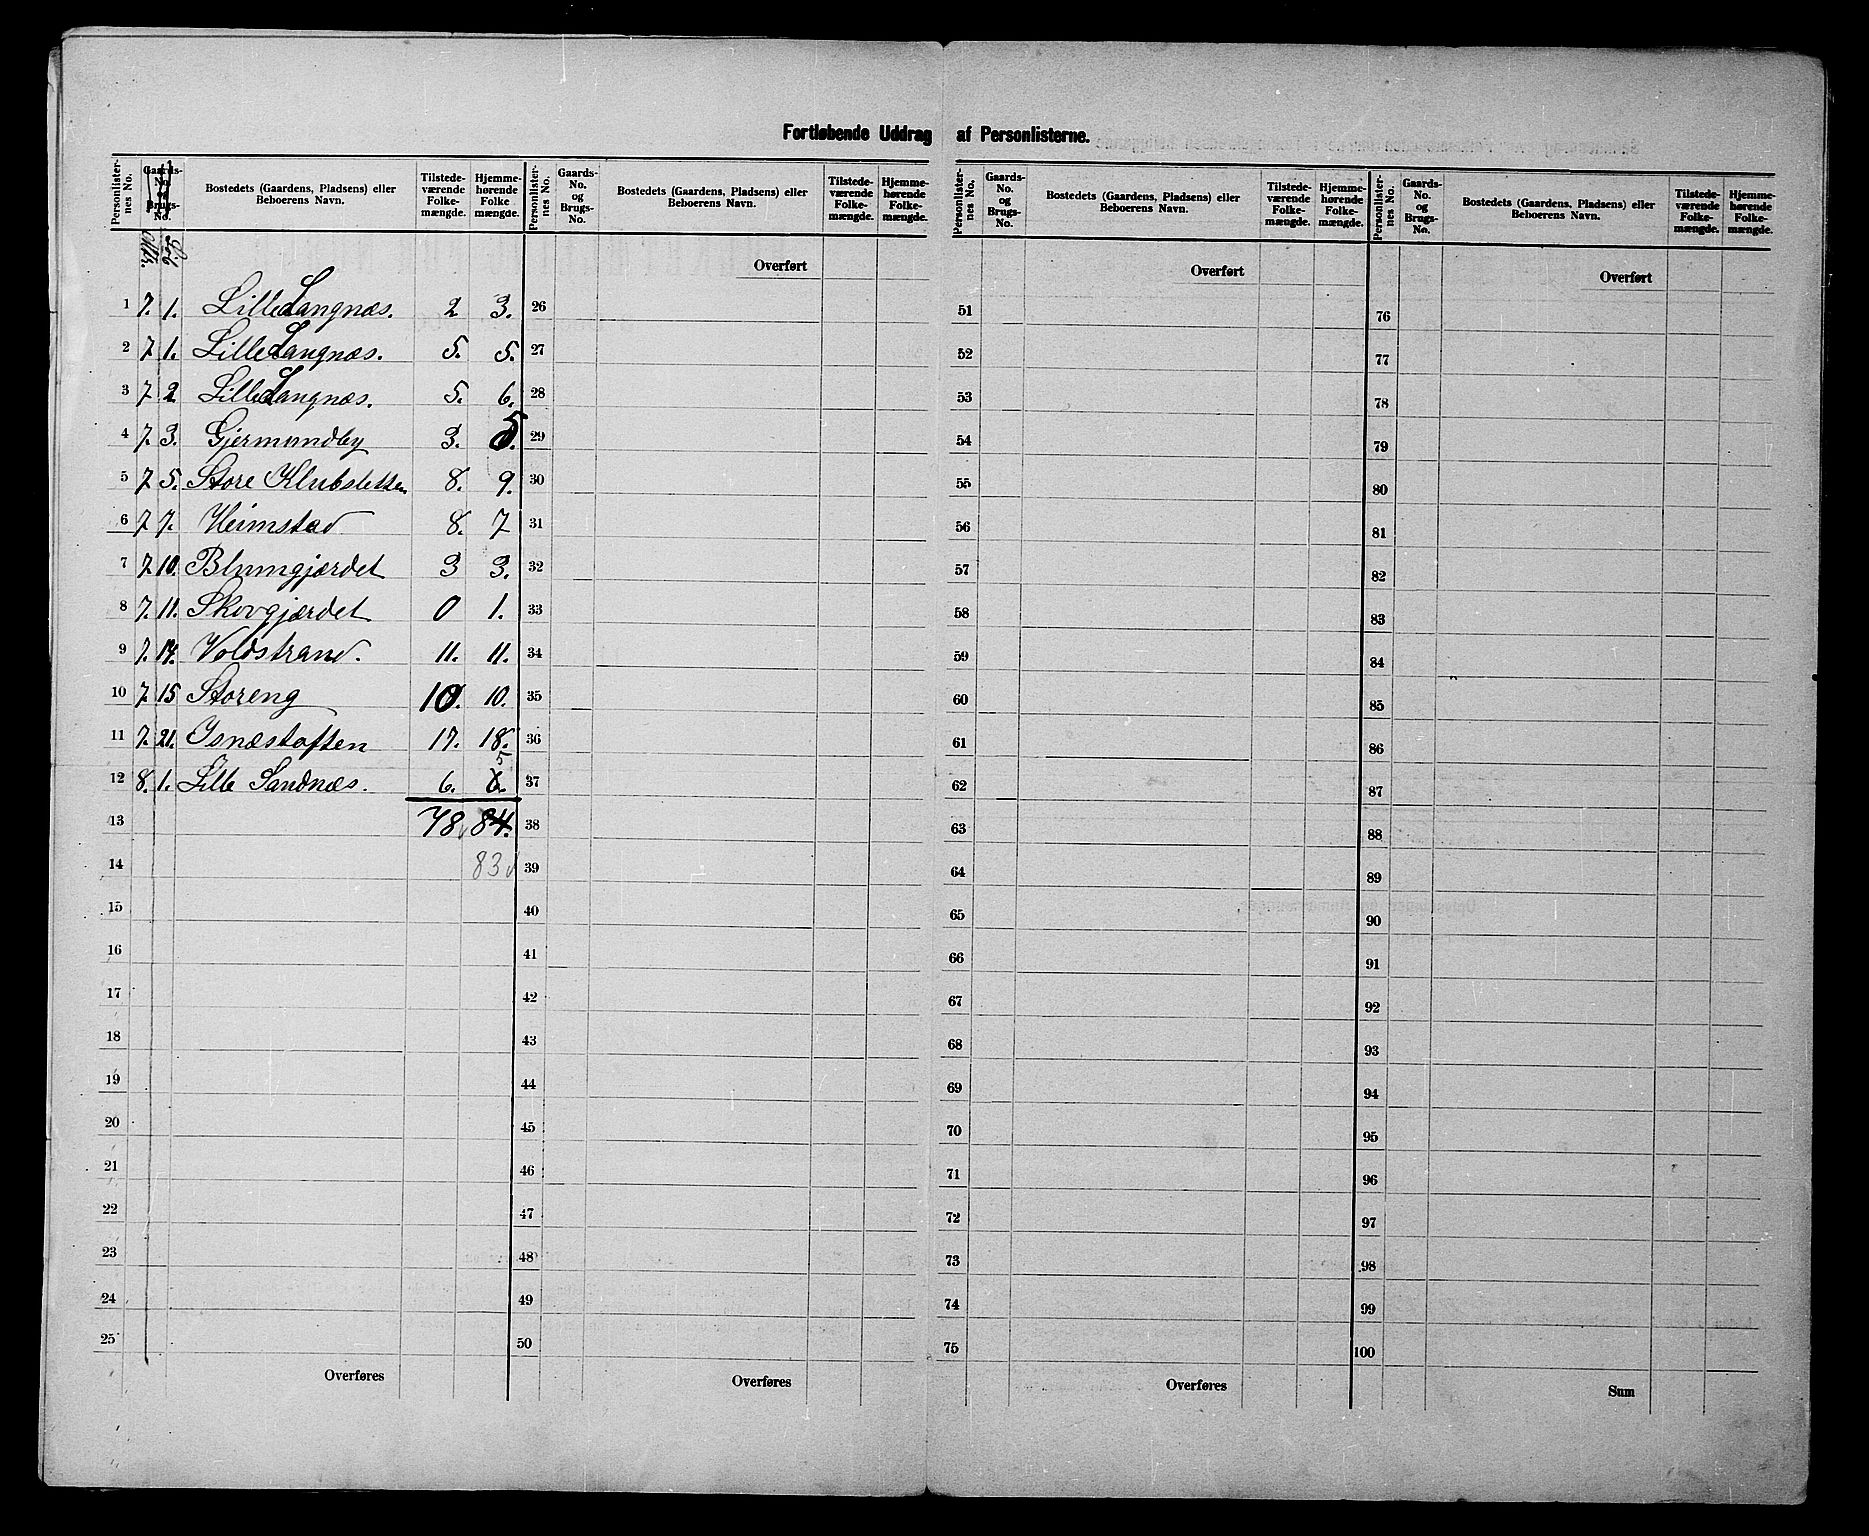 Fortløbende Uddrag af Personlisterne.
Personlisternes No. Gaards-No. og Brugs-No. Bostedets (Gaardens, Pladsens) eller Beboerens Navn. Tilstedeværende Folkemængde. Hjemmehørende Folkemængde.
Personlisternes No. Gaards-No. og Brugs-No. Bostedets (Gaardens, Pladsens) eller Beboerens Navn. Tilstedeværende Folkemængde. Hjemmehørende Folkemængde.
Personlisternes No. Gaards-No. og Brugs-No. Bostedets (Gaardens, Pladsens) eller Beboerens Navn. Tilstedeværende Folkemængde. Hjemmehørende Folkemængde.
Personlisternes No. Gaards-No. og Brugs-No. Bostedets (Gaardens, Pladsens) eller Beboerens Navn. Tilstedeværende Folkemængde. Hjemmehørende Folkemængde.
Overført Overført Overført
1 7. 1. Lille Langnæs. 2 3. 26 51 76
2 7 1. Lille Langnæs. 5. 5. 27 52 77
3 7 2 Lille Langnæs. 5. 6. 28 53 78
4 7. 3. Gjermundby 3. 5. 29 54 79
5 7 5. Store Klubsletten 8. 9. 30 55 80
6 7 7. Heimstad 8. 7 31 56 81
7 7. 10. Blumgjærdet 3 3. 32 57 82
8 7. 11. Skovgjærdet 0 1. 33 58 83
9 7. 14. Voldstrand. 11. 11. 34 59 84
10 7. 15 Storeng 10. 10. 35 60 85
11 7. 21. Isnæstoften 17. 18. 36 61 86
12 8. 1. Lille Sandnæs. 6. 6. 5 37 62 87
13 78 84. 38 63 88
14 83 39 64 89
15 40 65 90
16 41 66 91
17 42 67 92
18 43 68 93
19 44 69 94
20 45 70 95
21 46 71 96
22 47 72 97
23 48 73 98
24 49 74 99
25 50 75 100
Overføres Overføres Overføres Sum